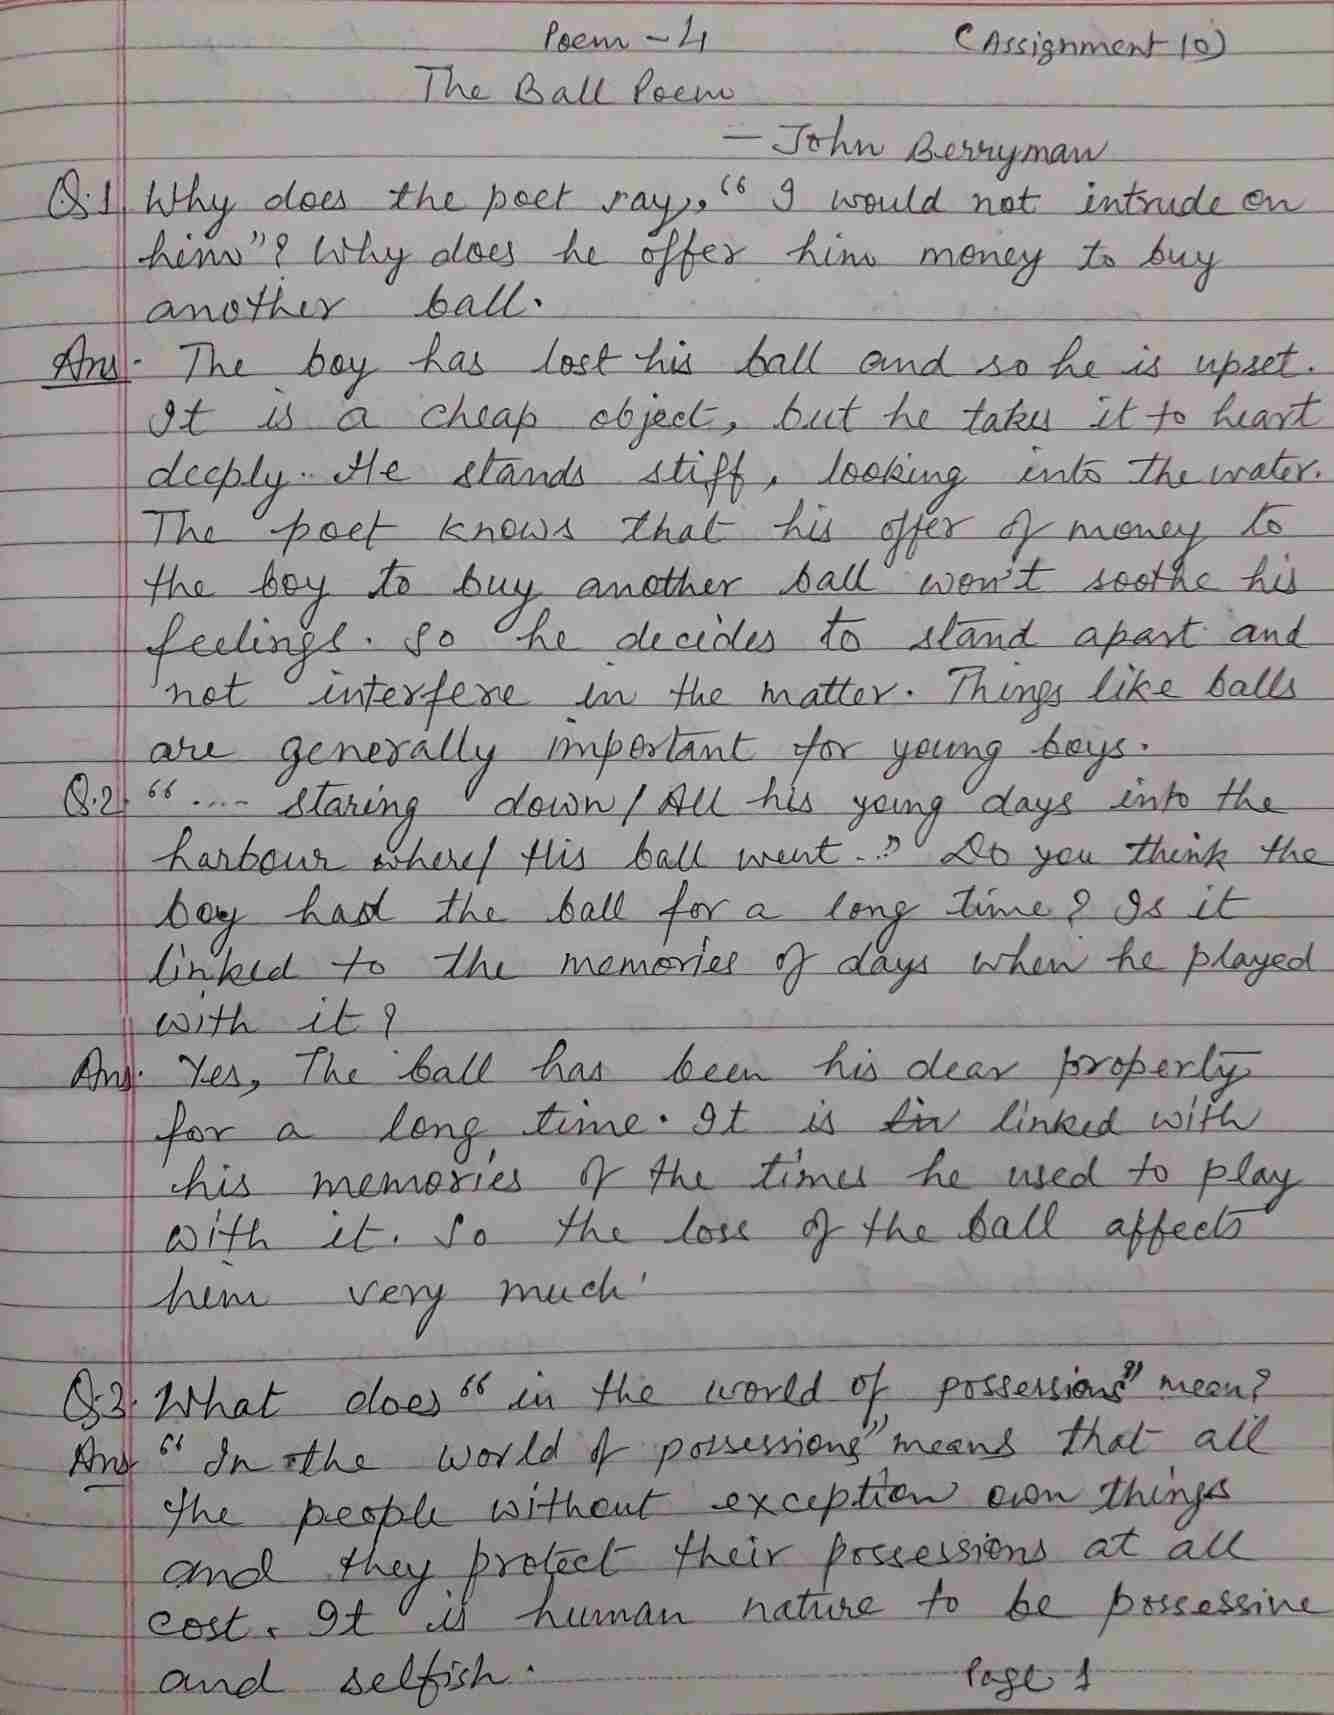 Poem - 4 (Assignment 10)
The Ball Poem
- John Berryman
Q.1. Why does the poet say, "I would not intrude on
him"? Why does he offer him money to buy
another ball.
Ans. The boy has lost his ball and so he is upset.
It is a cheap object, but he takes it to heart
deeply. He stands stiff, looking into the water.
The poet knows that his offer of money to
the boy to buy another ball won't soothe his
feelings. So he decides to stand apart and
not interfere in the matter. Things like balls
are generally important for young boys.
Q.2. ".... staring down / All his young days into the
harbour where / His ball went.." Do you think the
boy had the ball for a long time? Is it
linked to the memories of days when he played
with it?
Ans. Yes, The ball has been his dear property
for a long time. It is lin linked with
his memories of the times he used to play
with it. So the loss of the ball affects
him very much.
Q.3. What does "in the world of possessions" mean?
Ans "In the world of possessions" means that all
the people without exception own things
and they protect their possessions at all
cost. It is human nature to be possessive
and selfish. Page 1